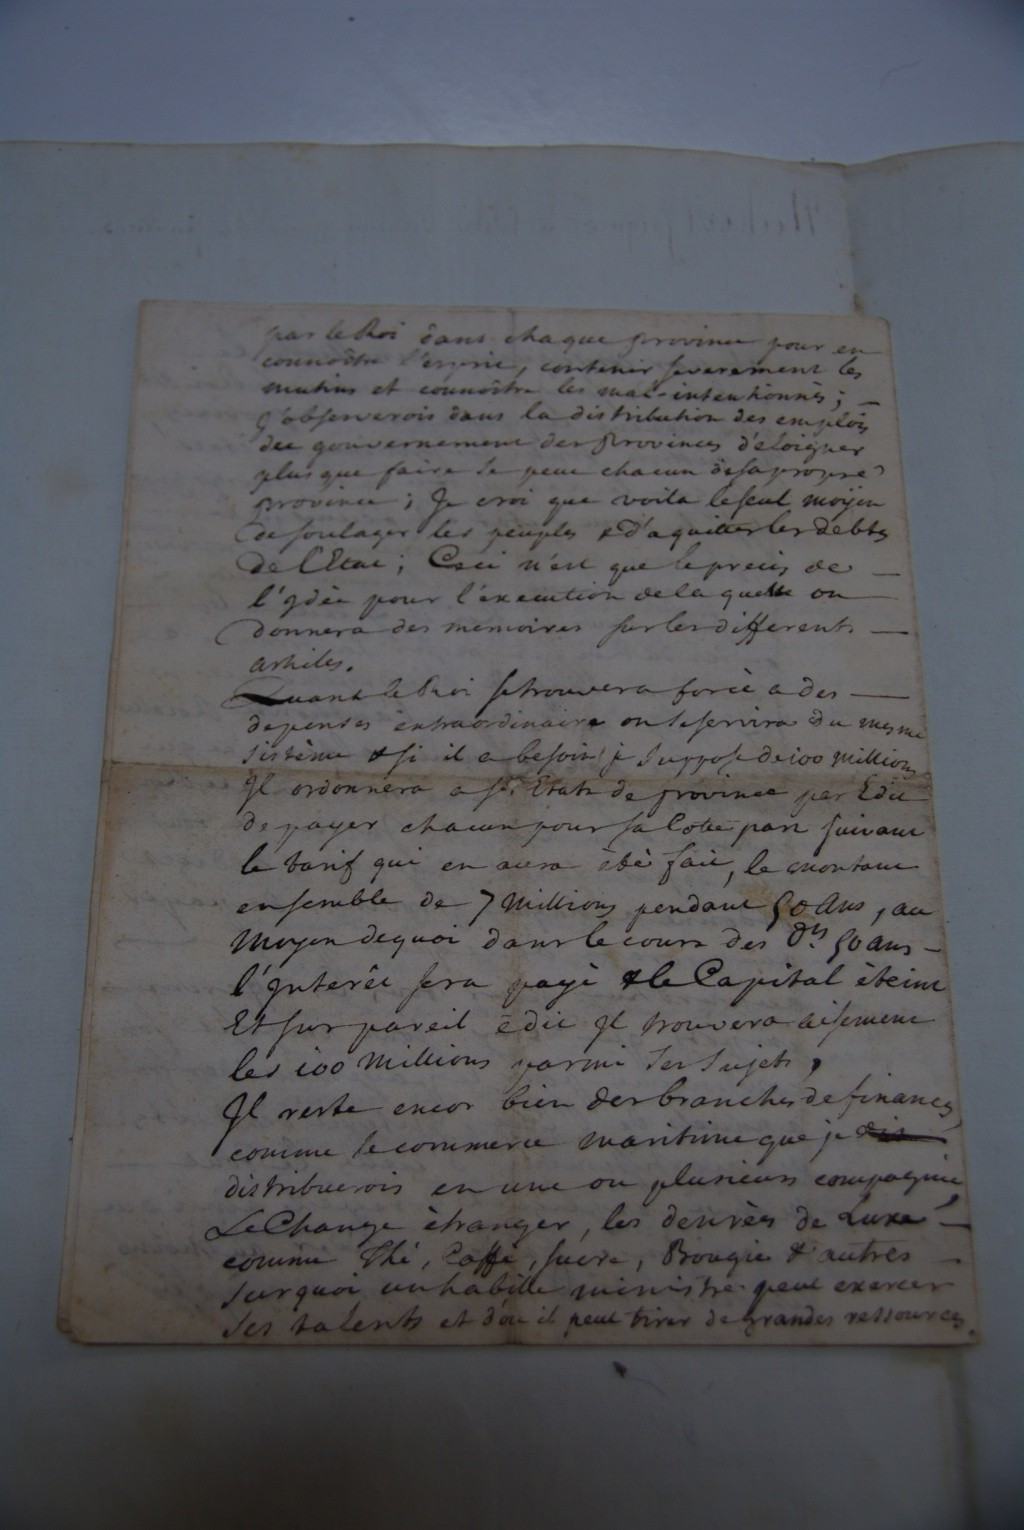 par le Roi dans chaque province pour en
connoître l'esprit, contenir severement les
mutins et connoître les mal-intentionnés; —
J'observerois dans la distribution des emplois
des gouvernement des Provinces d'éloigner
plus que faire se peut chacun de sa propre
province; Je croi que voila le seul moÿen
de soulager les peuples & d'aquitter les debtes
de l'Etat; Ceci n'est que le precis de —
l'Idée pour l'execution de la quelle on
donnera des memoires sur les differents —
articles.
Quant le Roi se trouvera forcé a des —
depenses extraordinaire on se servira du mesme
sistème & si il a besoin je suppose de 100 millions
Il ordonnera a ses Etats de province par Edit
de payer chacun pour sa Cotte part suivant
le tarif qui en aura été fait, le montant
ensemble de 7 Millions pendant 50 Ans, au
Moyen dequoi dans le cours des dts 50 ans —
l'Interêt sera payé & le Capital éteint
Et sur pareil édit Il trouvera aisement
les 100 Millions parmi ses sujets,
Il reste encor bien des branches de finances
comme le commerce maritime que je
distribuerois en une ou plusieurs compagnie,
Le Change étranger, les denrées de Luxe —
comme Thé, Caffé, sucre, Bougie & autres —
sur quoi un habille ministre peut exercer
ses talents et d'ou il peut tirer de grandes ressources.